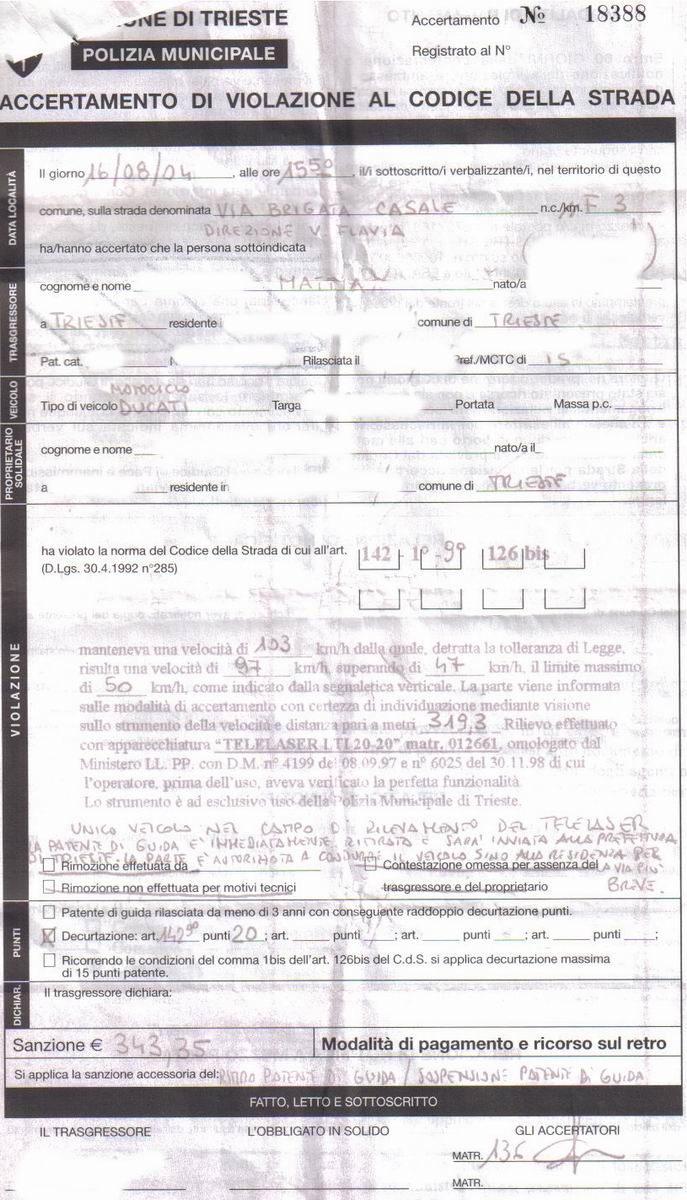 UNE DI TRIESTE
POLIZIA MUNICIPALE
Accertamento № 18388
Registrato al N°
ACCERTAMENTO DI VIOLAZIONE AL CODICE DELLA STRADA
DATA LOCALITÀ
Il giorno 16/08/04, alle ore 1550, il/i sottoscritto/i verbalizzante/i, nel territorio di questo
comune, sulla strada denominata VIA BRIGATA CASALE n.c./km. F 3
DIREZIONE V. FLAVIA
ha/hanno accertato che la persona sottoindicata
TRASGRESSORE
cognome e nome nato/a
a TRIESTE residente comune di TRIESTE
Pat. cat. Rilasciata il ref./MCTC di
VEICOLO
MOTOCICLO
Tipo di veicolo DUCATI Targa Portata Massa p.c.
PROPRIETARIO SOLIDALE
cognome e nome nato/a il
a residente in comune di TRIESTE
VIOLAZIONE
ha violato la norma del Codice della Strada di cui all'art. 142 - 1° - 9° 126 bis
(D.Lgs. 30.4.1992 n°285)
manteneva una velocità di 103 km/h dalla quale, detratta la tolleranza di Legge,
risulta una velocità di 97 km/h, superando di 47 km/h, il limite massimo
di 50 km/h, come indicato dalla segnaletica verticale. La parte viene informata
sulle modalità di accertamento con certezza di individuazione mediante visione
sullo strumento della velocità e distanza pari a metri 319,3 Rilievo effettuato
con apparecchiatura "TELELASER LTI 20-20" matr. 012661, omologato dal
Ministero LL. PP. con D.M. n° 4199 del 08.09.97 e n° 6025 del 30.11.98 di cui
l'operatore, prima dell'uso, aveva verificato la perfetta funzionalità.
Lo strumento è ad esclusivo uso della Polizia Municipale di Trieste.
UNICO VEICOLO NEL CAMPO DI RILEVAMENTO DEL TELELASER
LA PATENTE DI GUIDA È IMMEDIATAMENTE RITIRATA E SARA' INVIATA ALLA PREFETTURA
DI TRIESTE. LA PARTE E' AUTORIZZATA A CONDURRE IL VEICOLO SINO ALLA RESIDENZA PER
Rimozione effettuata da Contestazione omessa per assenza del LA VIA PIU'
Rimozione non effettuata per motivi tecnici trasgressore e del proprietario BREVE.
PUNTI
Patente di guida rilasciata da meno di 3 anni con conseguente raddoppio decurtazione punti.
X Decurtazione: art. 142 9° punti 20 ; art. punti ; art. punti ; art. punti ;
Ricorrendo le condizioni del comma 1bis dell'art. 126bis del C.d.S. si applica decurtazione massima
di 15 punti patente.
DICHIAR.
Il trasgressore dichiara:
Sanzione € 343,35 Modalità di pagamento e ricorso sul retro
Si applica la sanzione accessoria del: RITIRO PATENTE DI GUIDA / SOSPENSIONE PATENTE DI GUIDA
FATTO, LETTO E SOTTOSCRITTO
IL TRASGRESSORE L'OBBLIGATO IN SOLIDO GLI ACCERTATORI
MATR. 136
MATR.